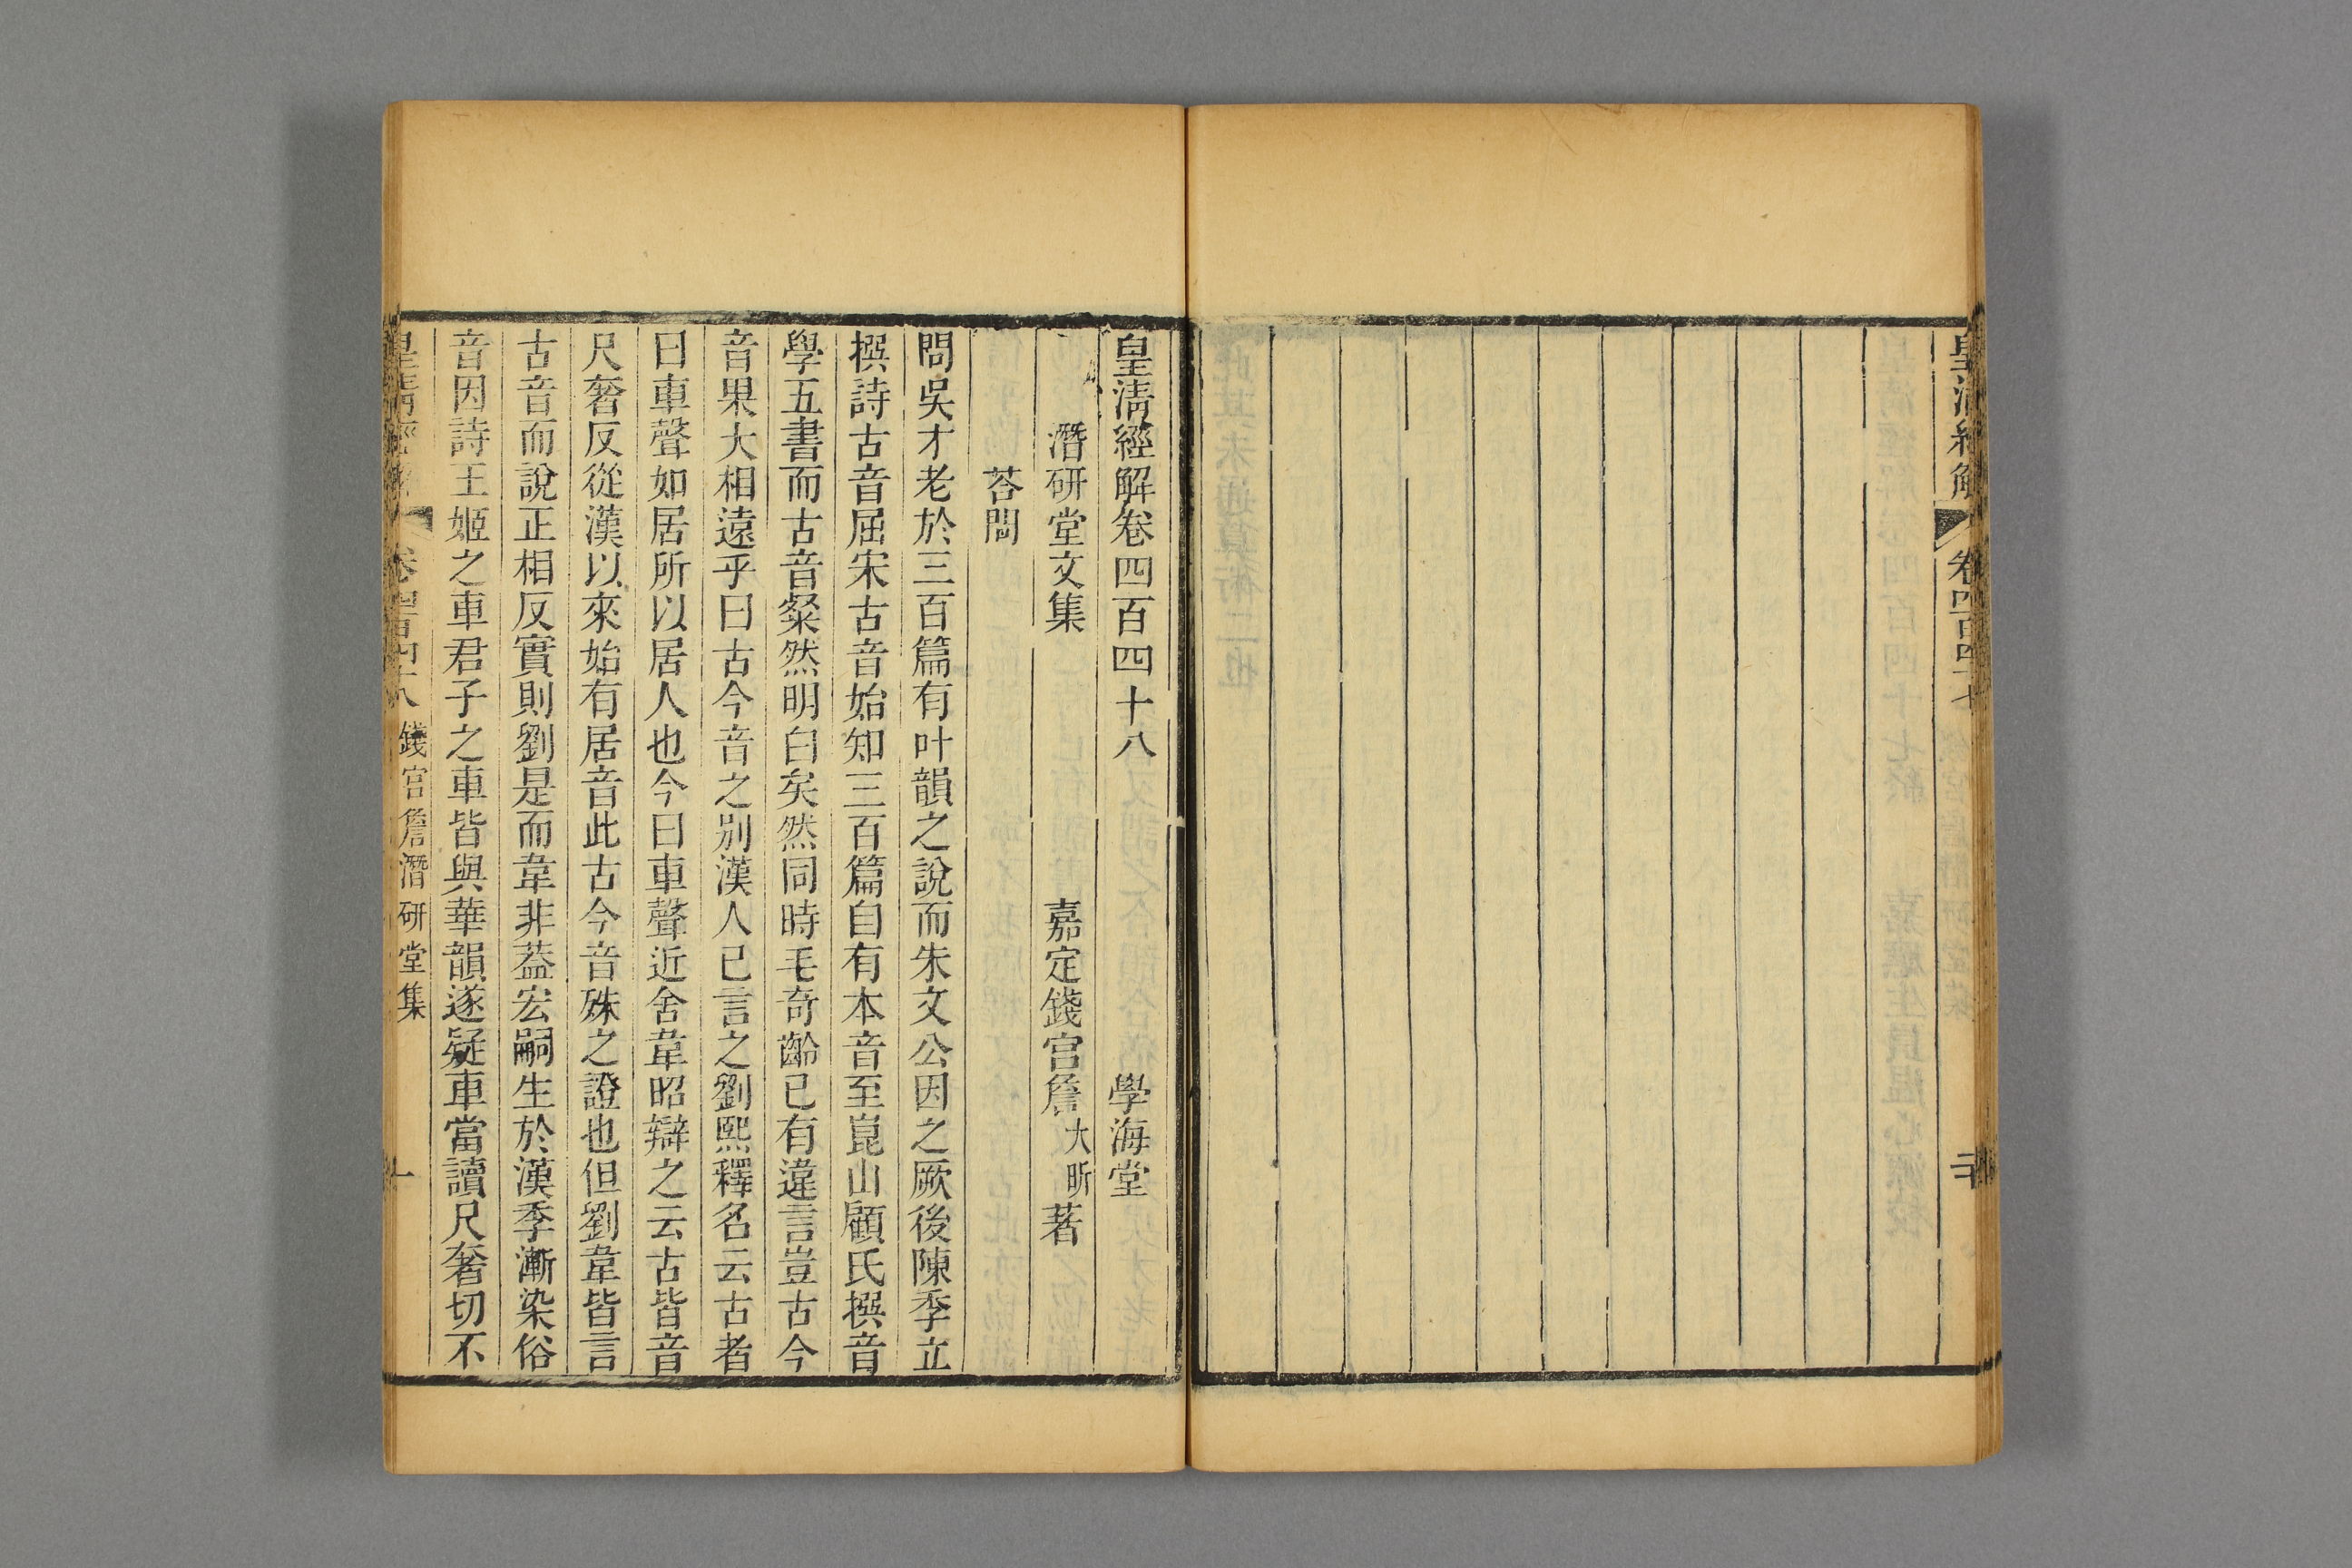 皇清經解 卷四百四十七 二十
皇清經解卷四百四十八 學海堂
潛研堂文集 嘉定錢宮詹大昕著
荅問
問吳才老於三百篇有叶韻之說而朱文公因之厥後陳季立
撰詩古音屈宋古音始知三百篇自有本音至崑山顧氏撰音
學五書而古音粲然明白矣然同時毛奇齡已有違言豈古今
音果大相遠乎曰古今音之别漢人已言之劉熙釋名云古者
曰車聲如居所以居人也今曰車聲近舍韋昭辯之云古皆音
尺奢反從漢以來始有居音此古今音殊之證也但劉韋皆言
古音而說正相反實則劉是而韋非葢宏嗣生於漢季漸染俗
音因詩王姬之車君子之車皆與華韻遂疑車當讀尺奢切不
皇清經解 卷四百四十八 錢宮詹潛研堂集 一